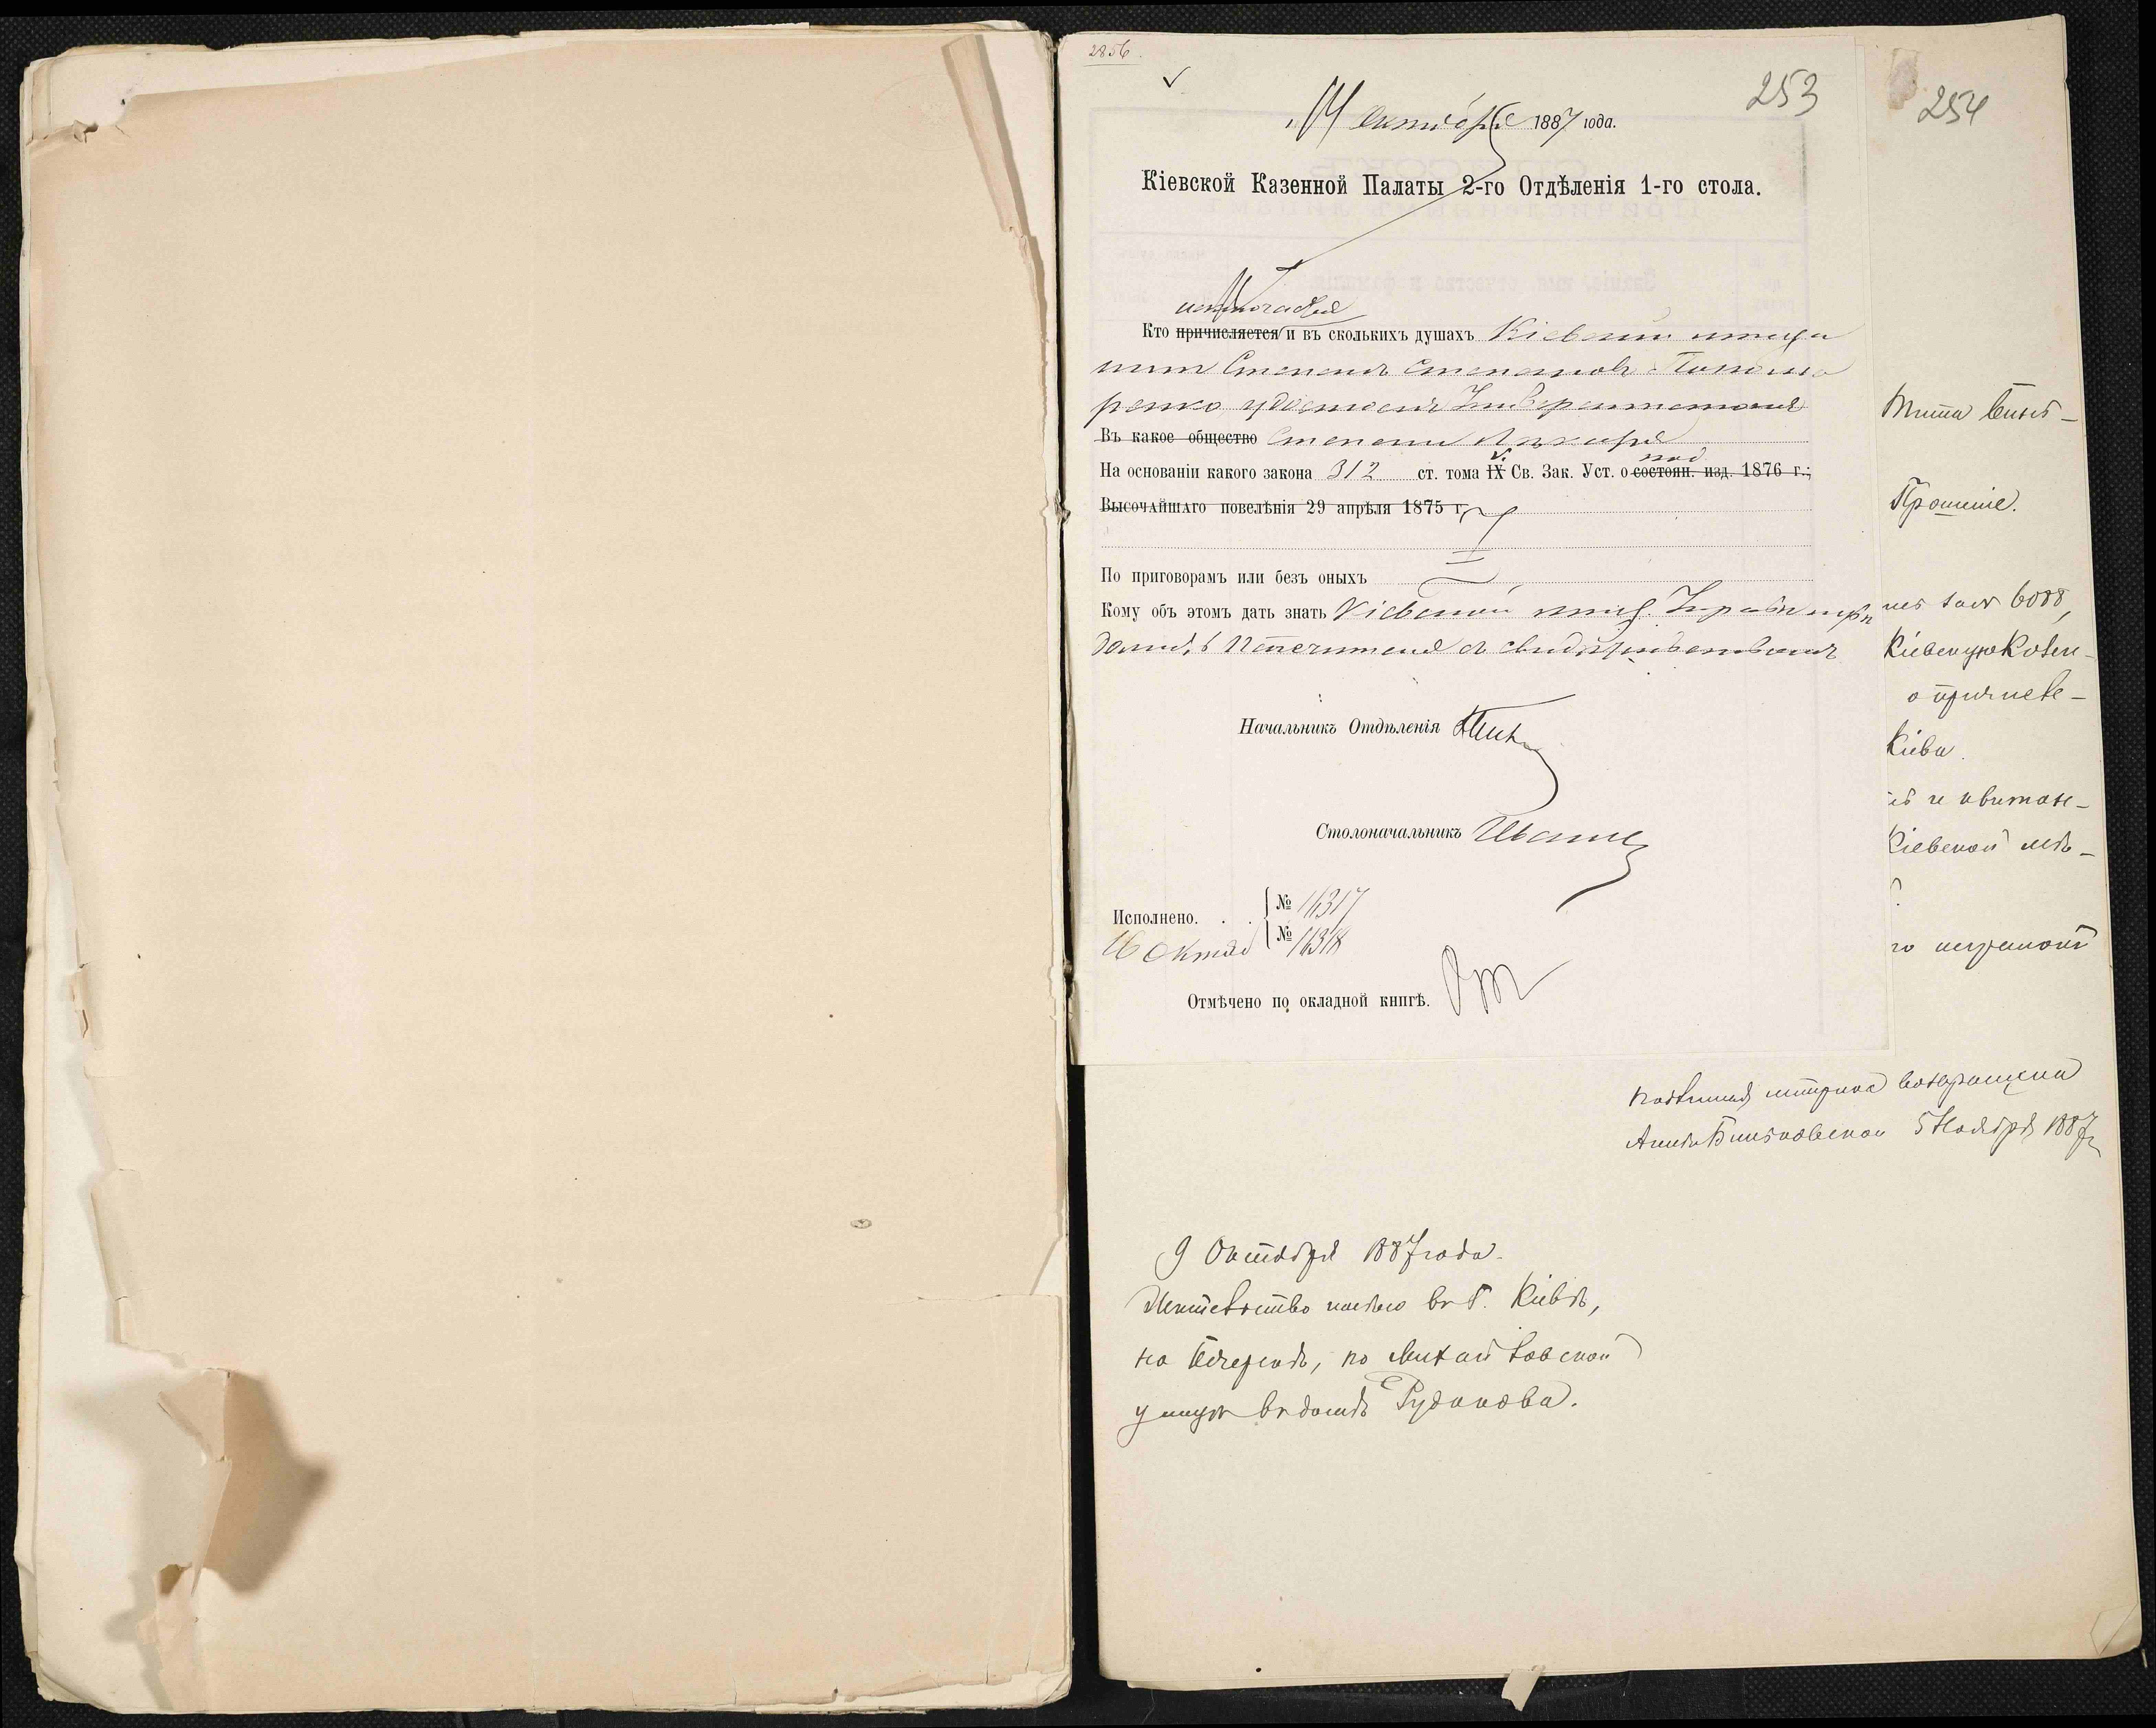 2856.
253
14 Октября 1887 года.
Кіевской Казенной Палаты 2-го Отдѣленія 1-го стола.
исключается
Кто причисляется и въ сколькихъ душахъ Кіевскій мѣща
нинъ Степанъ Степановъ Понома
ренко удостоенъ Университетомъ
Въ какое общество Степени Лѣкаря
На основаніи какого закона 312 ст. тома IX V. Св. Зак. Уст. о под состоян. изд. 1876 г.;
Высочайшаго повелѣнія 29 апрѣля 1875 г.
По приговорамъ или безъ оныхъ
Кому объ этомъ дать знать Кіевской мѣщ. Управѣ
Начальникъ Отдѣленія
Столоначальникъ
Исполнено. . . № 11317
16 Октяб № 11318
Отмѣчено по окладной книгѣ.
254
Прошеніе.
Кіевскую Казен-
о причисле-
Кіева.
и квитан-
Кіевской мѣ-
метрика возвращена
5 Ноября 1887 г.
9 Октября 1887 года.
Жительство имѣю въ г. Кіевѣ,
на Печерскѣ, по Михайловской
улицѣ въ домѣ Рудакова.